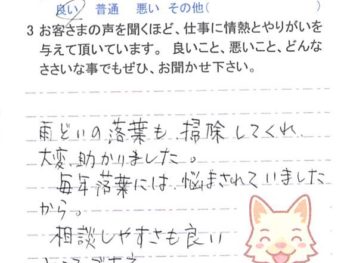 良い 普通 悪い その他( )
3 お客さまの声を聞くほど、仕事に情熱とやりがいを
与えて頂いています。 良いこと、悪いこと、どんな
ささいな事でもぜひ、お聞かせ下さい。
雨どいの落葉も掃除してくれ
大変助かりました。
毎年落葉には、悩まされていました
から。
相談しやすさも良い